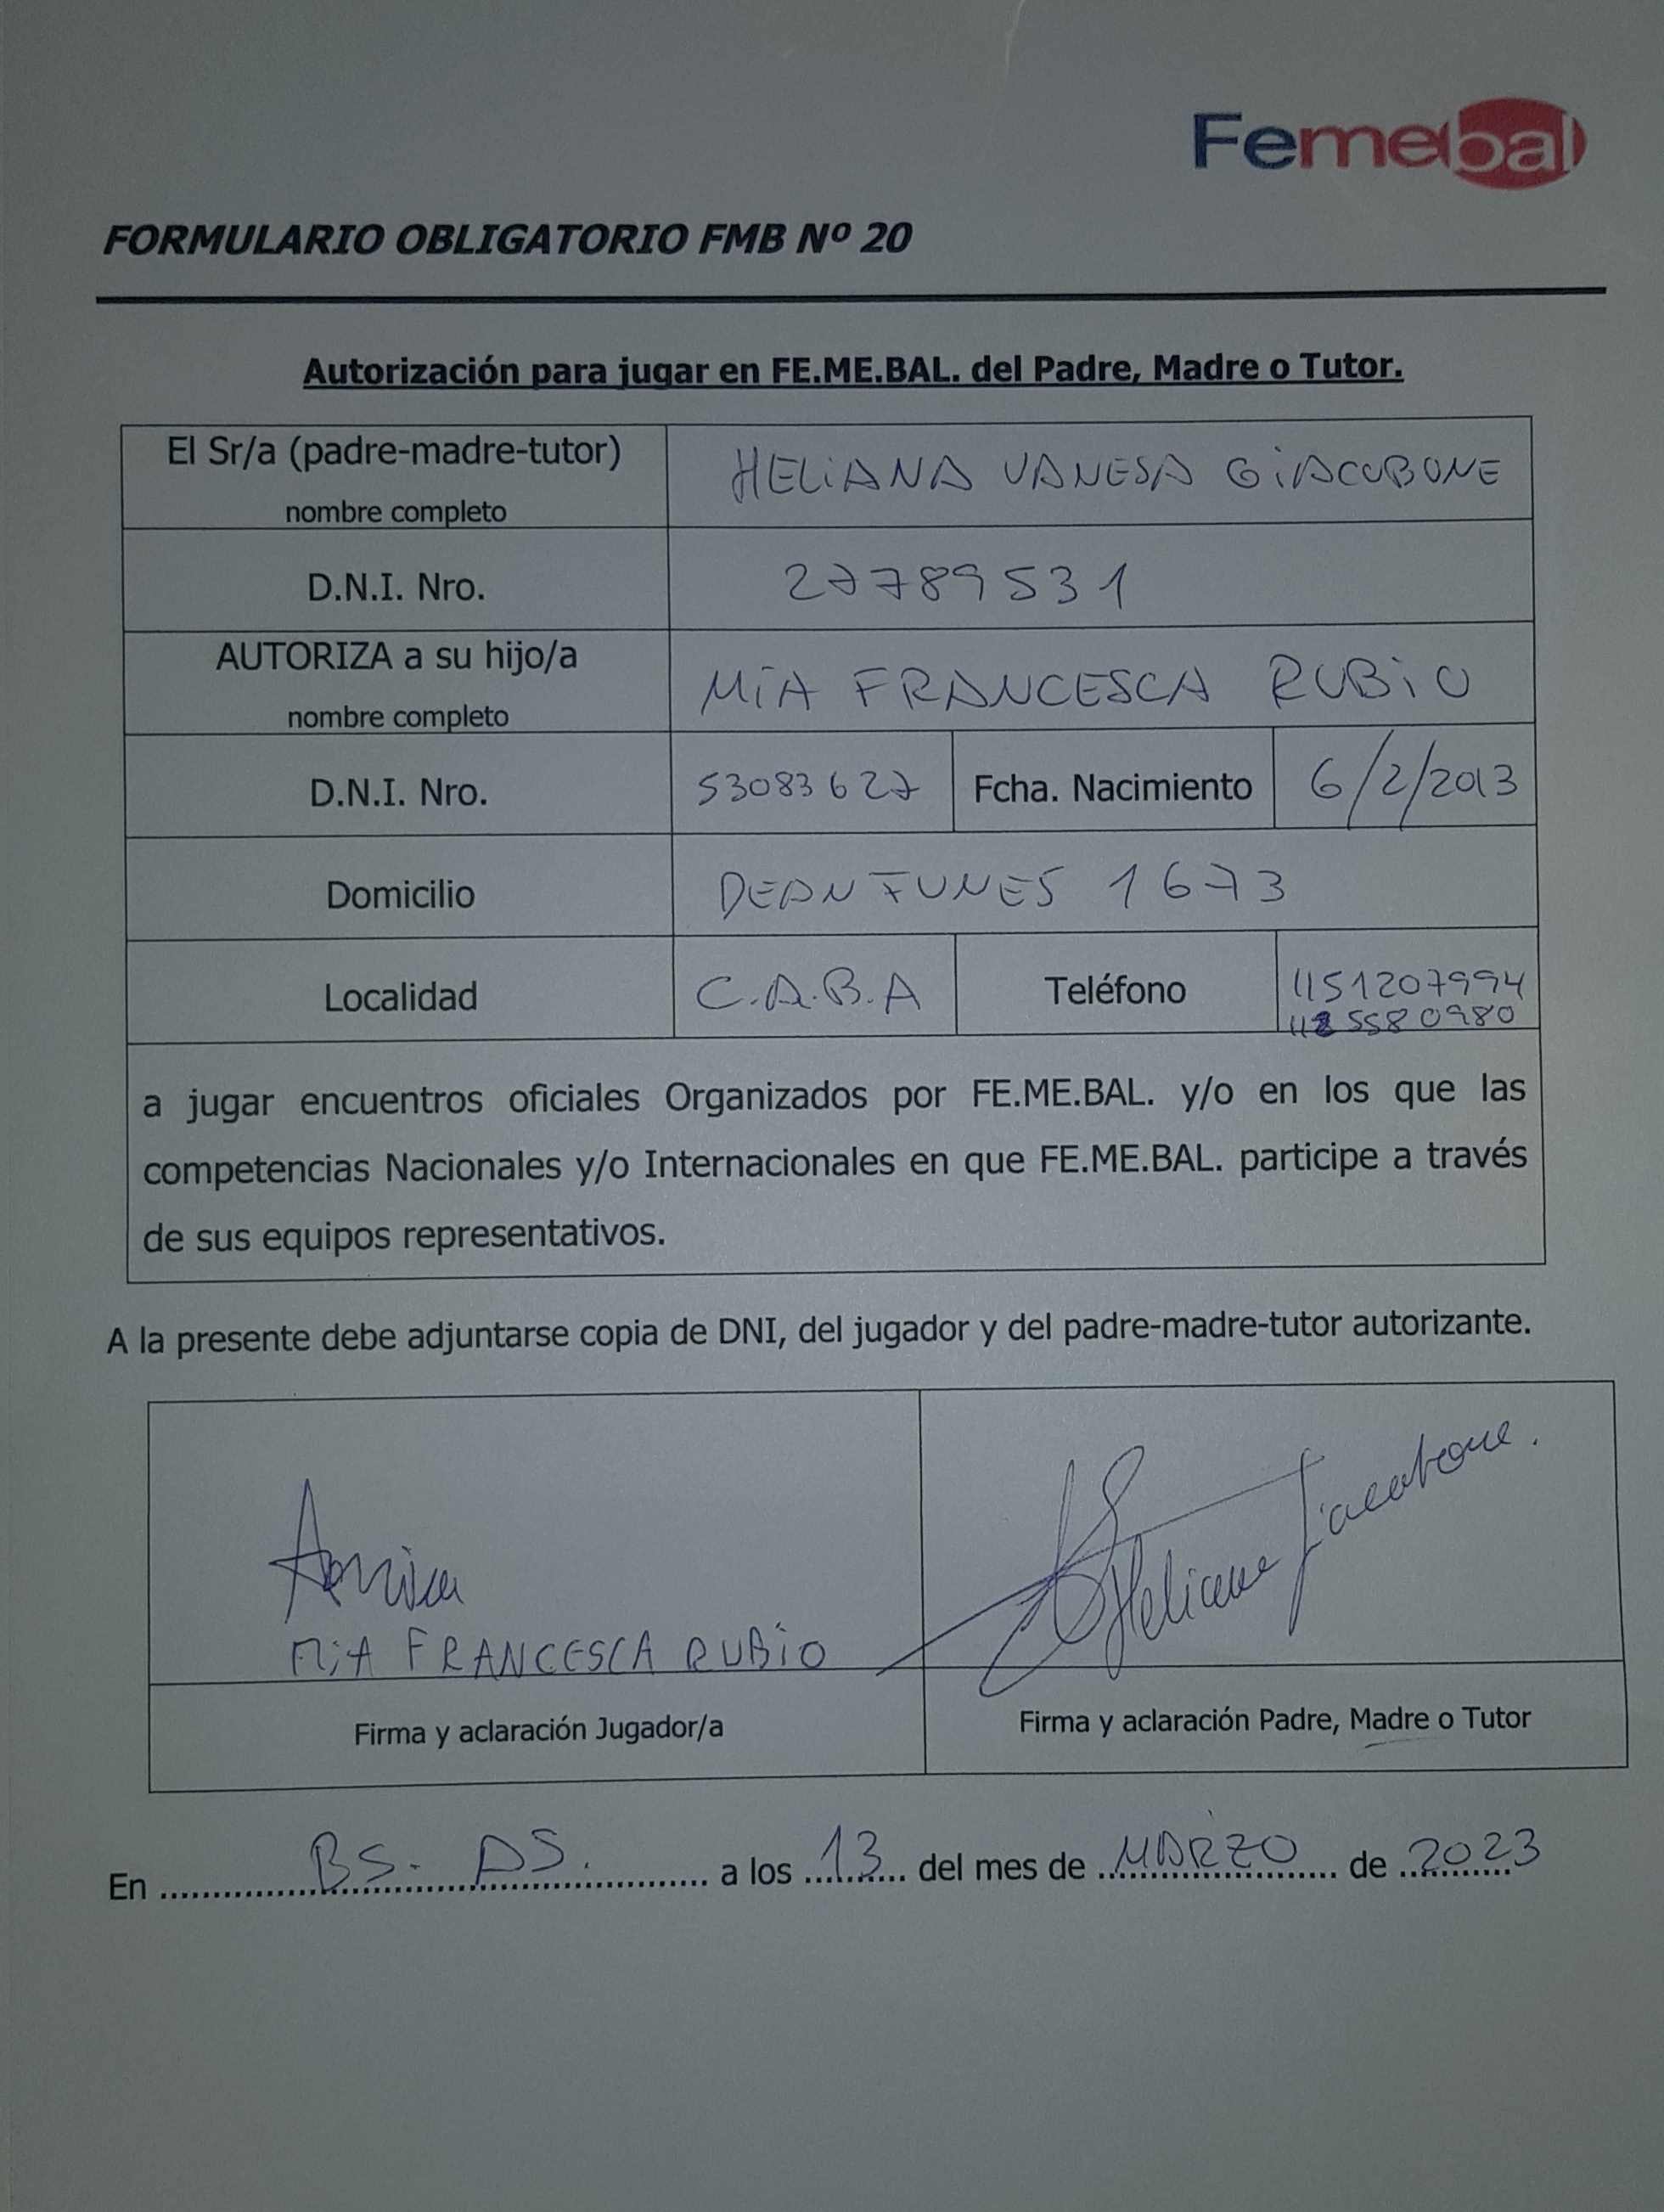 Femebal
FORMULARIO OBLIGATORIO FMB Nº 20
Autorización para jugar en FE.ME.BAL. del Padre, Madre o Tutor.
El Sr/a (padre-madre-tutor)
nombre completo
HELIANA VANESA GIACOBONE
D.N.I. Nro.
27789531
AUTORIZA a su hijo/a
nombre completo
MIA FRANCESCA RUBIO
D.N.I. Nro.
53083627
Fcha. Nacimiento
6/2/2013
Domicilio
DEAN FUNES 1673
Localidad
C.A.B.A
Teléfono
1151207994
1125580980
a jugar encuentros oficiales Organizados por FE.ME.BAL. y/o en los que las
competencias Nacionales y/o Internacionales en que FE.ME.BAL. participe a través
de sus equipos representativos.
A la presente debe adjuntarse copia de DNI, del jugador y del padre-madre-tutor autorizante.
MIA FRANCESCA RUBIO
Heliana Giacobone.
Firma y aclaración Jugador/a
Firma y aclaración Padre, Madre o Tutor
En BS. AS. a los 13 del mes de MARZO de 2023